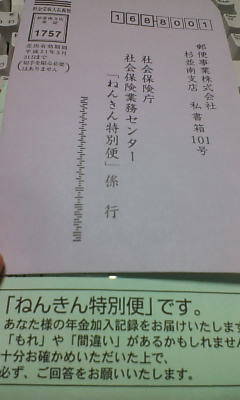 168-8001
料金受取人払郵便
1757
差出有効期間
平成21年3月
31日まで
切手を貼る必要
はありません
郵便事業株式会社
杉並南支店 私書箱101号
社会保険庁
社会保険業務センター
「ねんきん特別便」係 行
「ねんきん特別便」です。
あなた様の年金加入記録をお届けいたします
「もれ」や「間違い」があるかもしれません
十分お確かめいただいた上で、
必ず、ご回答をお願いいたします。